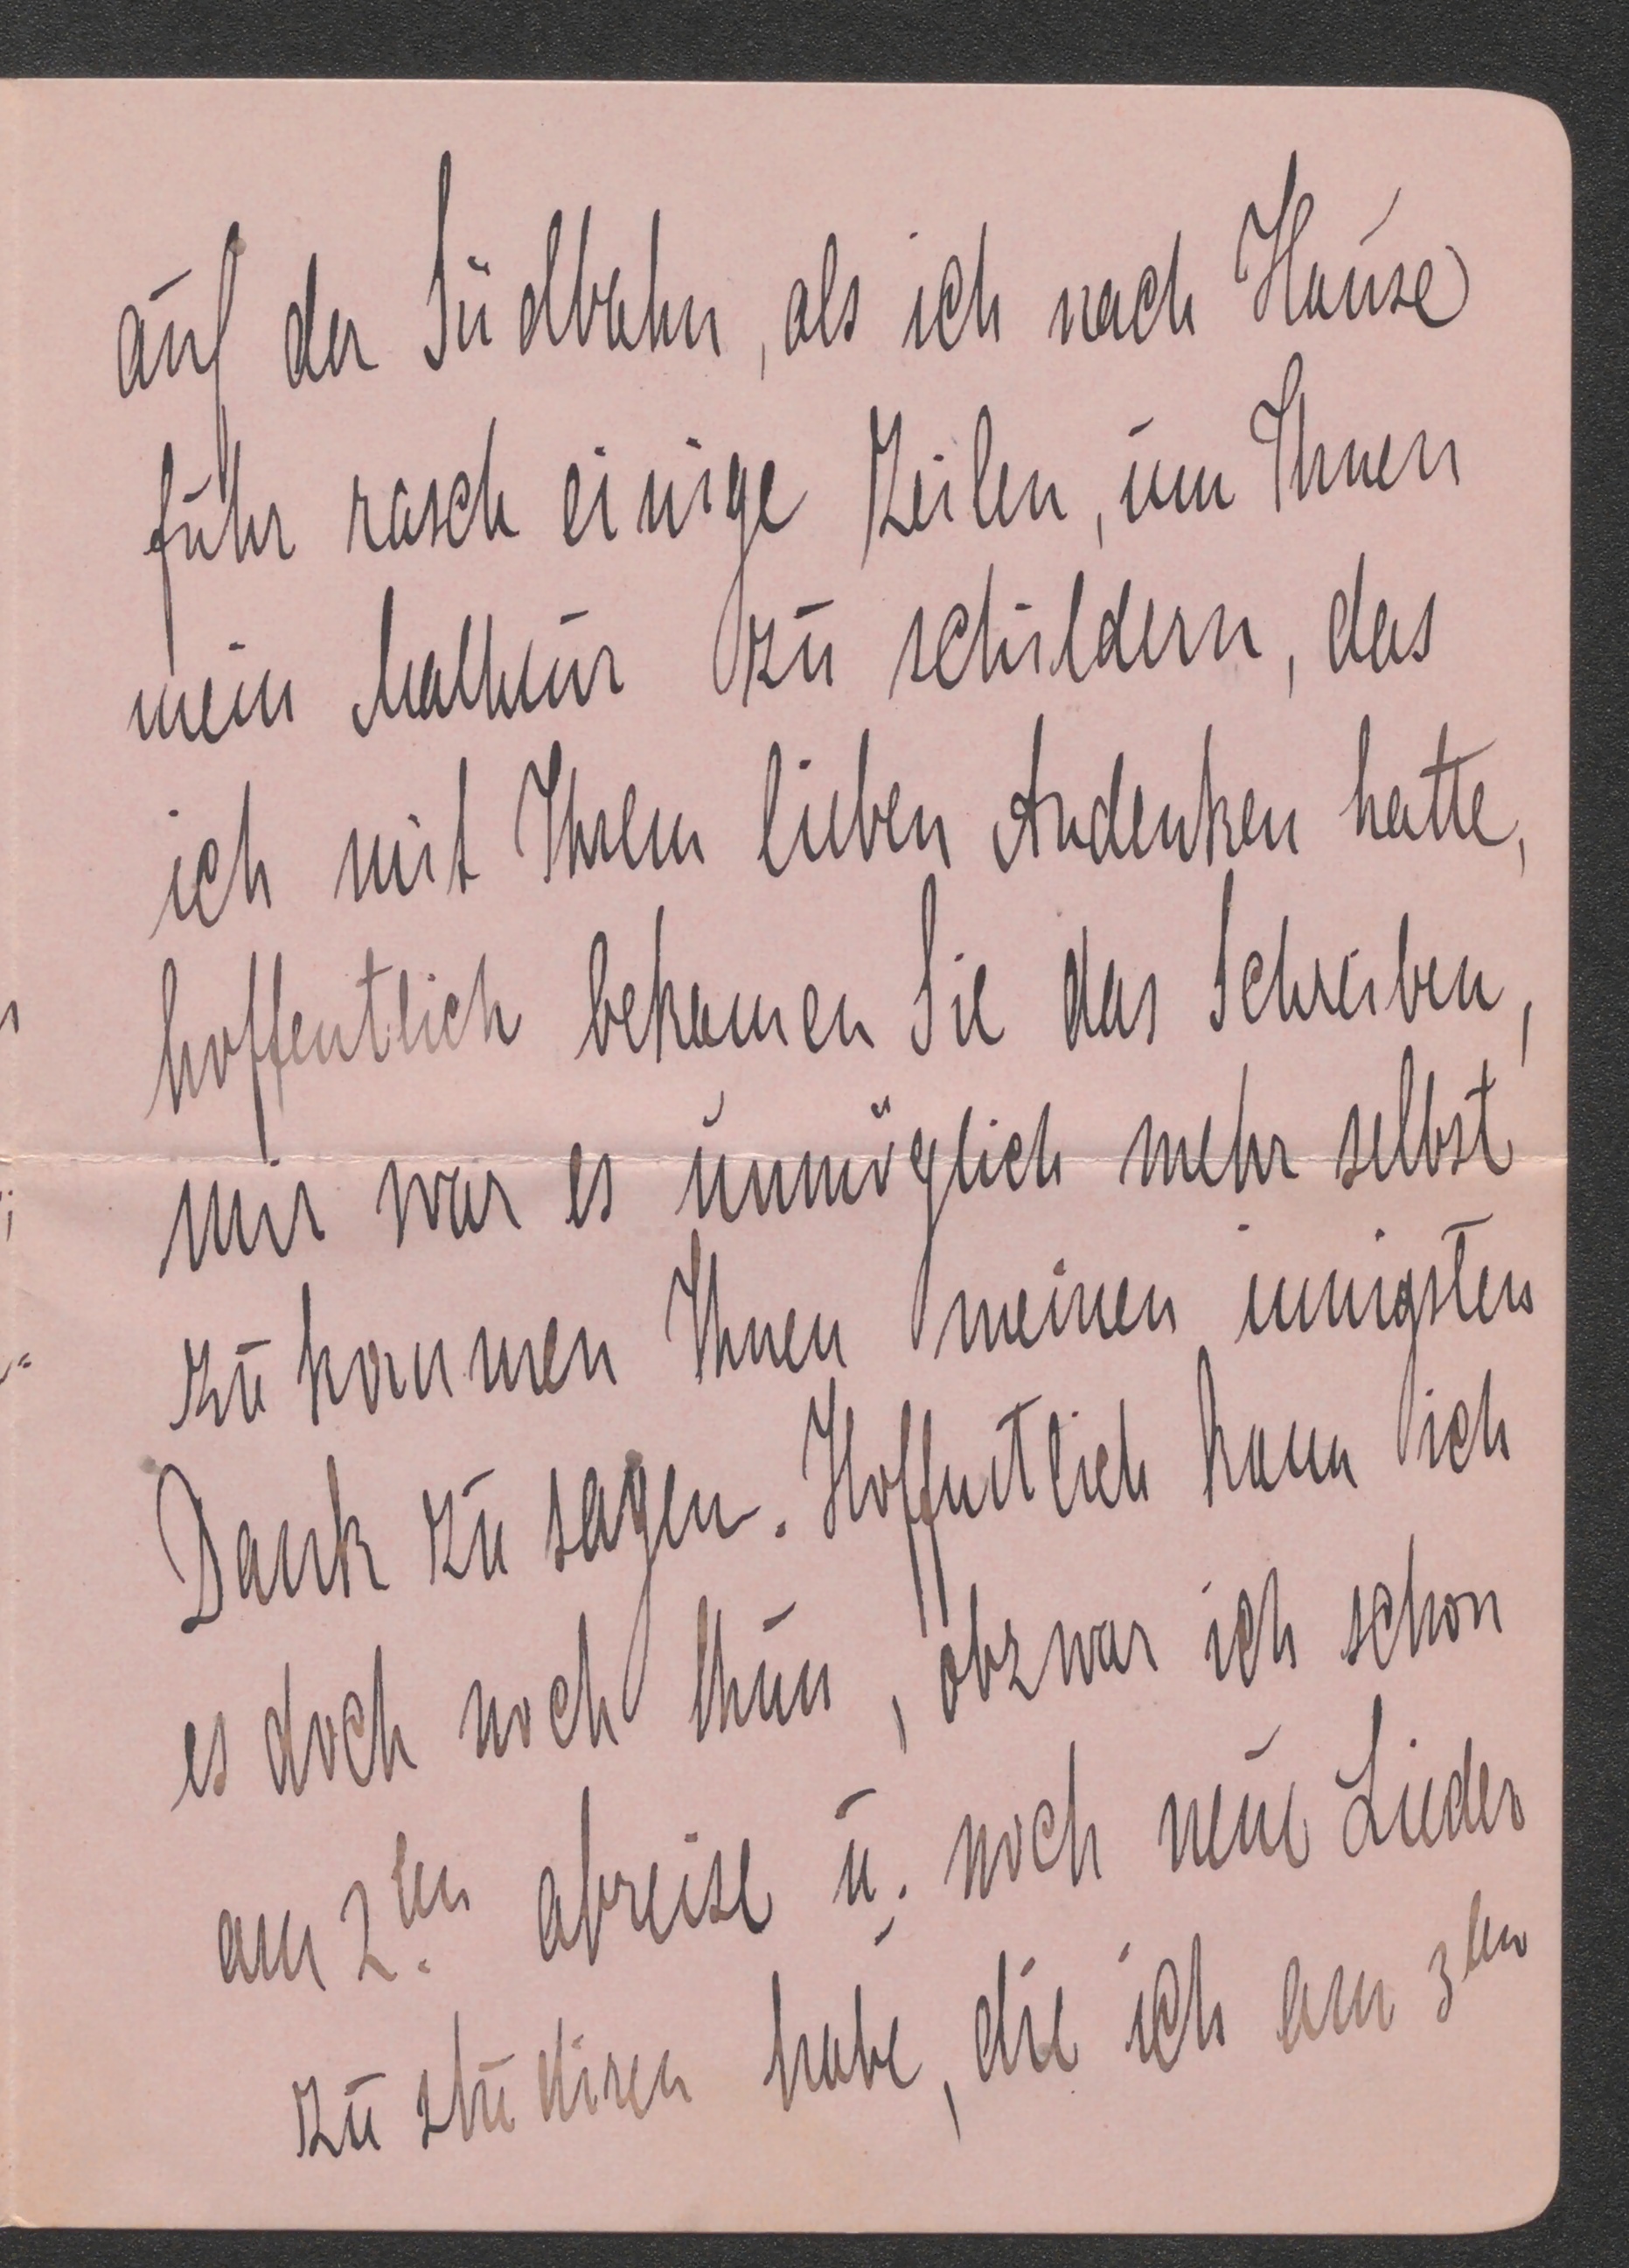 auf der Südbahn, als ich nach Hause
fuhr rasch einige Zeilen, um Ihnen
mein Malheur zu schildern, das
ich mit Ihrem lieben Andenken hatte,
hoffentlich bekamen Sie das Schreiben,
mir war es unmöglich mehr selbst
zu kommen Ihnen meinen innigsten
Dank zu sagen. Hoffentlich kann ich
es doch noch thun, obzwar ich schon
am 2ten abreise u. noch neue Lieder
zu studiren habe, die ich am 3ten